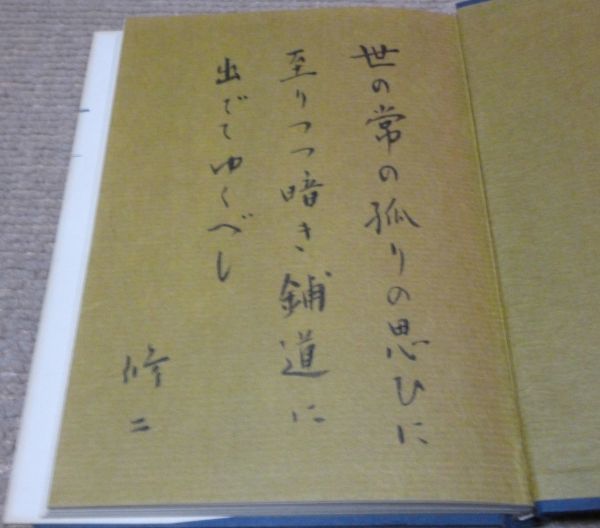 世の常の孤りの思ひに
至りつつ暗き鋪道に
出でてゆくべし
修二